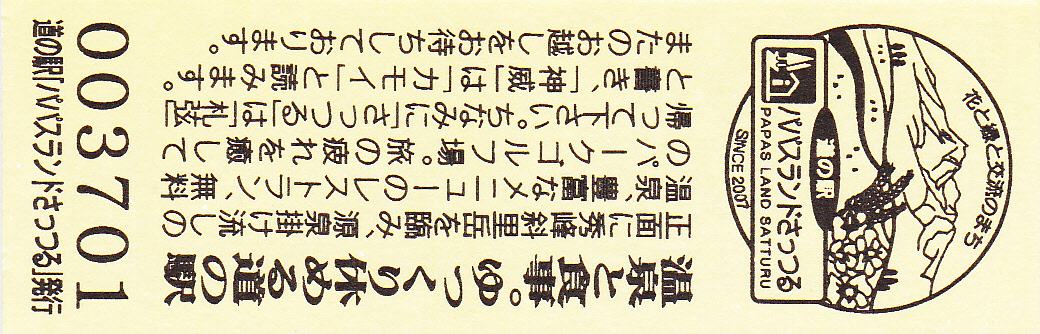 花と緑と交流のまち
道の駅
パパスランドさっつる
PAPAS LAND SATTURU
SINCE 2007
温泉と食事。ゆっくり休める道の駅
正面に秀峰斜里岳を臨み、源泉掛け流しの
温泉、豊富なメニューのレストラン、無料
のパークゴルフ場。旅の疲れを癒して
帰って下さい。ちなみに「さっつる」は「札弦」
と書き、「神威」は「カモイ」と読みます。
またのお越しをお待ちしております。
003701
道の駅「パパスランドさっつる」発行